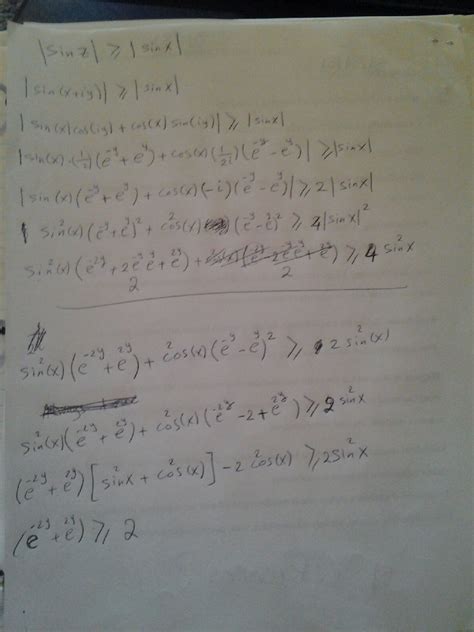 |sin z| ⩾ |sin x|
|sin(x+iy)| ⩾ |sin x|
|sin(x)cos(iy) + cos(x) sin(iy)| ⩾ |sin x|
|sin(x)·(1/2)(e^-y + e^y) + cos(x)(1/2i)(e^-y - e^y)| ⩾ |sin x|
|sin(x)(e^-y + e^y) + cos(x)(-i)(e^-y - e^y)| ⩾ 2|sin x|
sin²(x)(e^-y + e^y)² + cos²(x) (e^-y - e^y)² ⩾ 4|sin x|²
sin²(x)(e^-2y + 2e^-y e^y + e^2y) + ⩾ 4 sin²x
2 2
sin²(x)(e^-2y + e^2y) + cos²(x)(e^-y - e^y)² ⩾ 2 sin²(x)
sin²(x)(e^-2y + e^2y) + cos²(x)(e^-2y - 2 + e^2y) ⩾ 2 sin²x
(e^-2y + e^2y)[sin²x + cos²(x)] - 2cos²(x) ⩾ 2sin²x
(e^-2y + e^2y) ⩾ 2